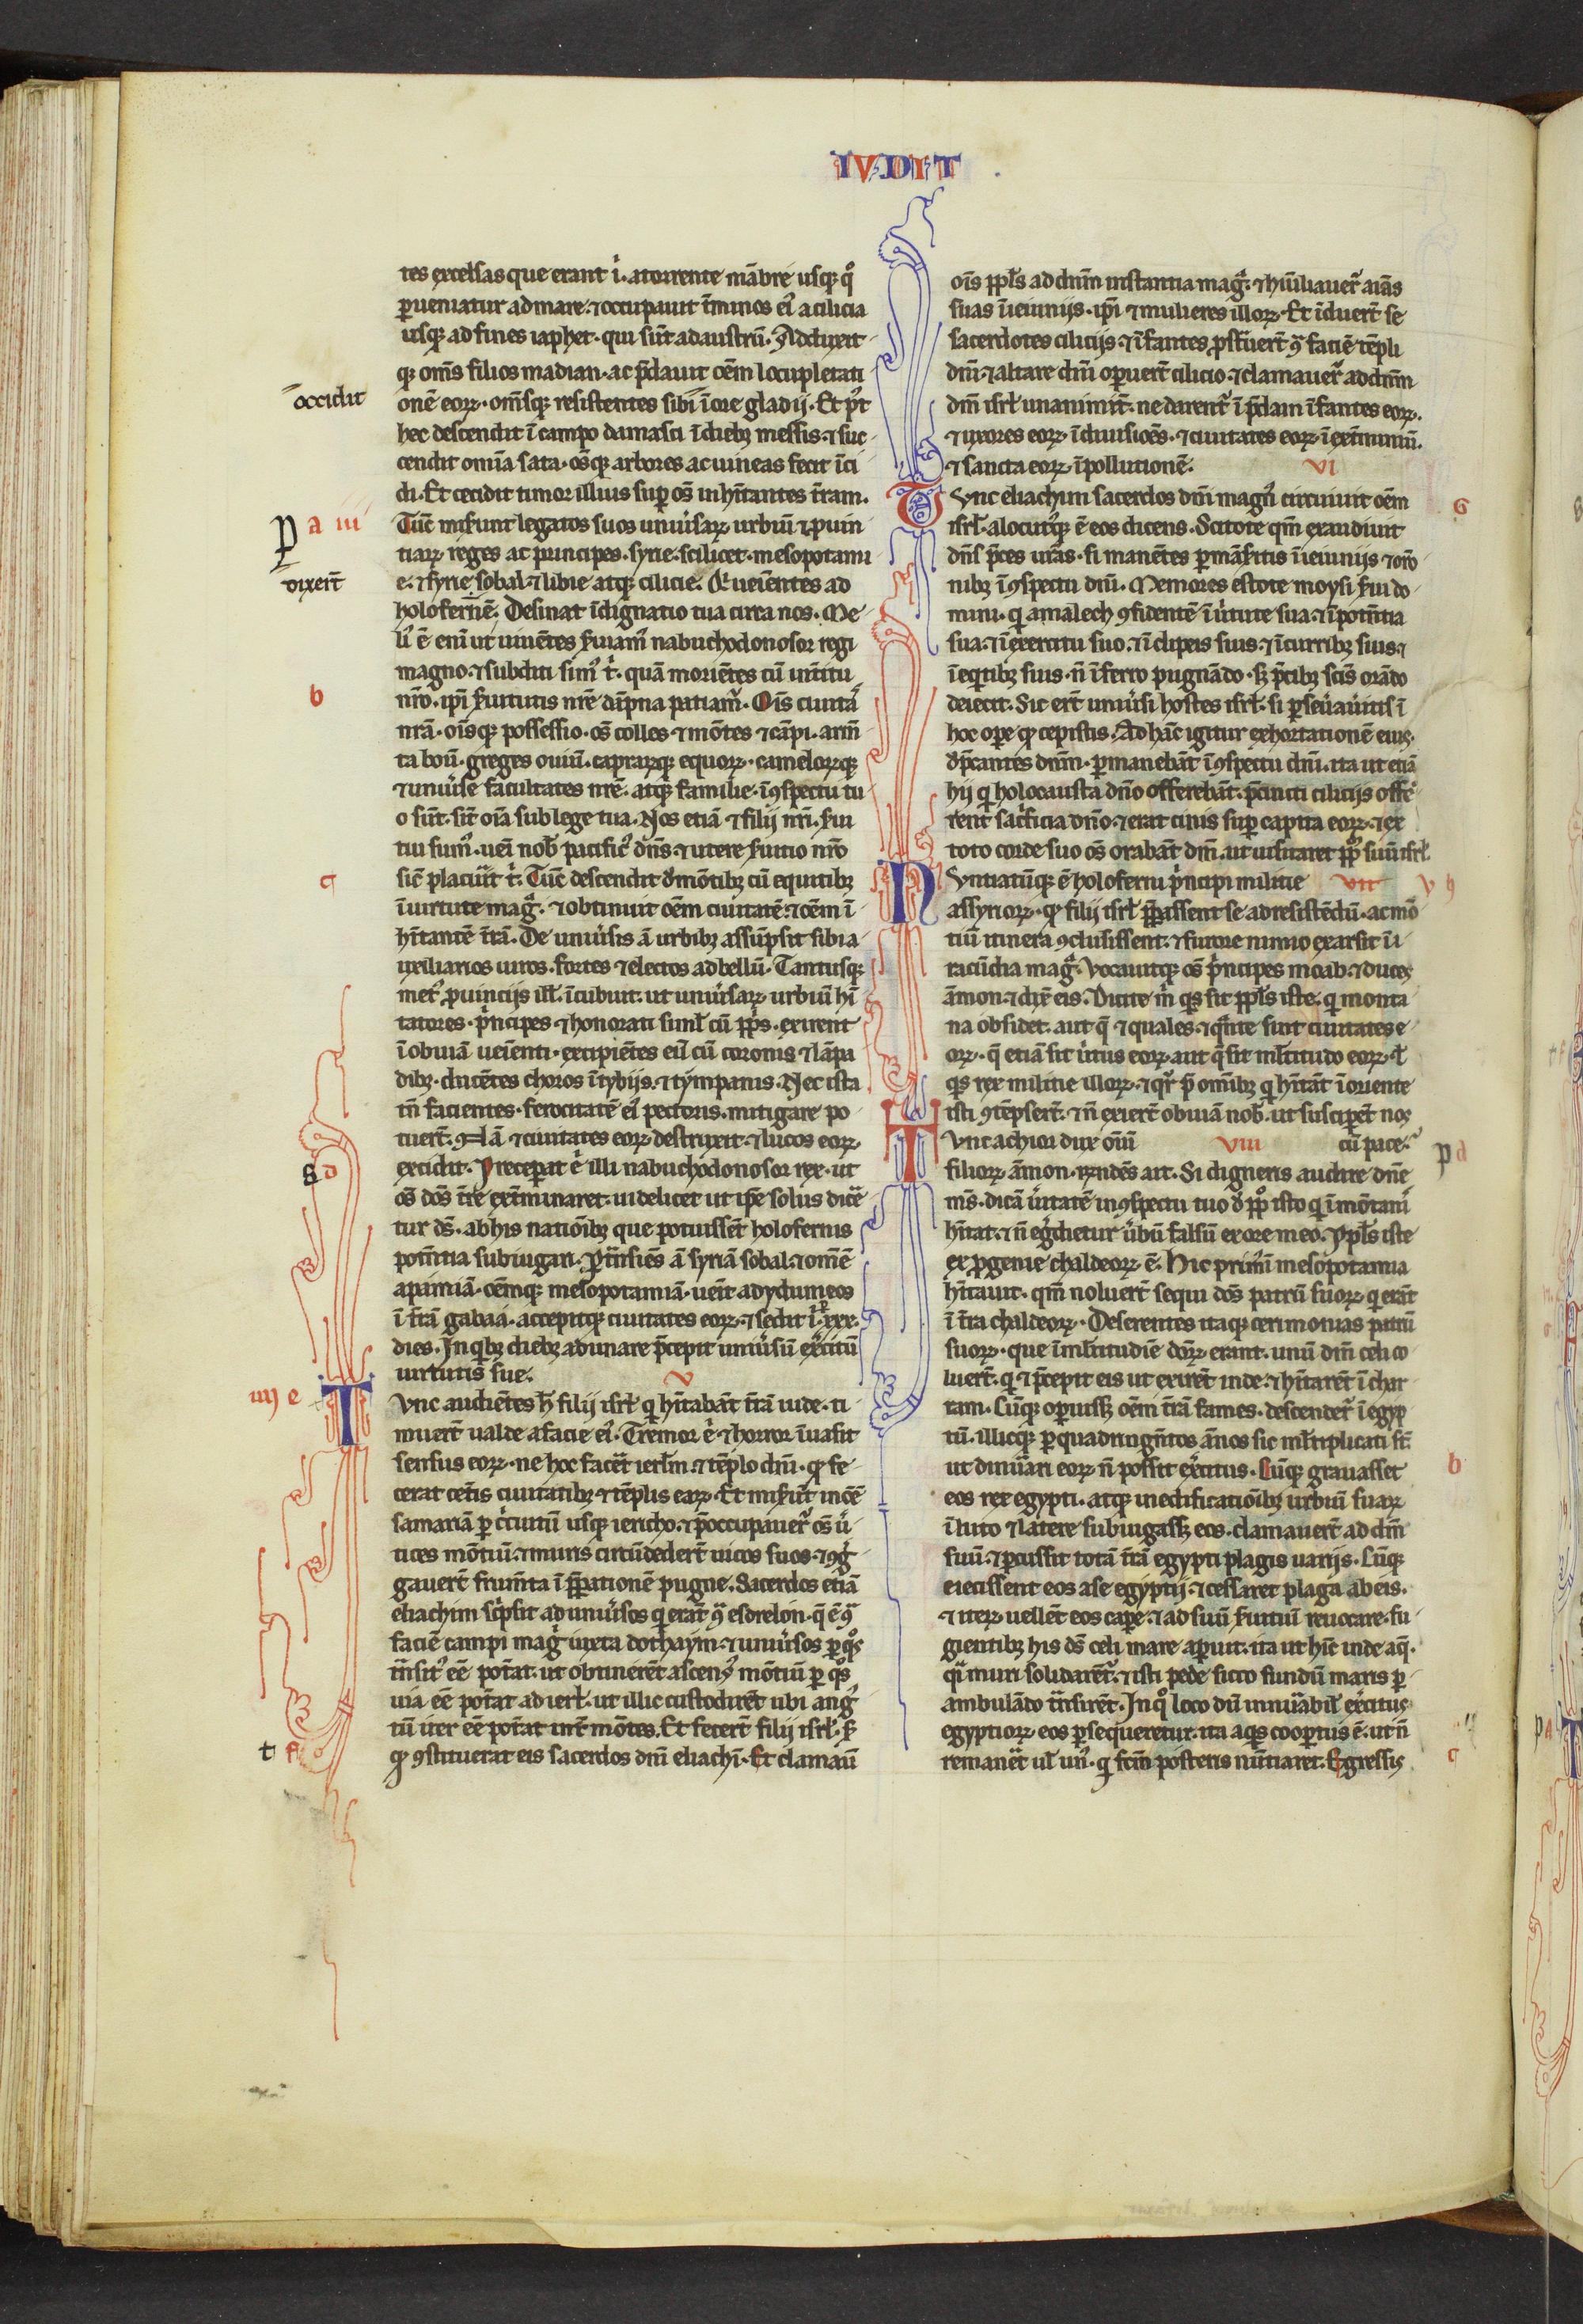 IVDIT
tes excelsas que erant ı̄. a torrente mābre usq; q°
p̱ueniatur ad mare. ⁊ occupauit t̄minos eī a cilicia
usq; ad fines iaphet. qui sūt ad austrū. Adduxit
q; om̄s filios madian. ac p̄dauit oēm locupletati
occidit
onē eoꝝ. om̄sq; resistentes sibi ī ore gladij. Et p't
hec descendit ī campo damasci ī dieb; messis. ⁊ suc
cendit omīa sata. os̄q; arbores ac uineas fecit īci
di. Et cecidit timor illius sup̱ os̄ inhītantes t̄ram.
a iii
Tūc mis̄unt legatos suos uniūsaꝝ urbiū ⁊ p̱uin
tiaꝝ reges ac principes. syrie. scilicet. mesopotami
dixer̄t
e. ⁊ syrie sobal. ⁊ libie atq; cilicie. Q ueiētes ad
holofernē. Desinat īdignatio tua circa nos. Me
lī ē enī ut uiuētes s̄uiamꝰ nabuchodonosor regi
magno. ⁊ subditi simꝰ t'. quā moriētes cū int̄itu
b
nr̄o. ip̄i s̄uitutis nr̄e dāpna patiamꝰ. Oīs ciuita
nr̄a. oīsq; possessio. os̄ colles ⁊ mōtes ⁊ cāpi. arm̄
ta boū. greges ouiū. capraꝝq; equoꝝ. cameloꝝq;
⁊ uniūse facultates nr̄e. atq; familie. ī ꝯspectu tu
o sūt. sīt oīa sub lege tua. Nos etiā ⁊ filij nr̄i. s̄ui
tui sumꝰ. uēi nob̄ pacificꝰ dn̄s. ⁊ utere s̄uitio nr̄o
c
sic̄ placūit t'. Tūc descendit d̄ mōtib; cū equitib;
ī uirtute magᵃ. ⁊ obtinuit oēm ciuitatē. ⁊ oēm ī
hītantē t̄rā. De uniūsis ā urbib; assūpsit sibi a
uxiliarios uiros. fortes ⁊ electos ad bellū. Tantusq;
metꝰ p̱uincijs ill̄. īcubuit. ut uniūsaꝝ urbiū hī
tatores. p'ncipes ⁊ honorati siml̄ cū pp̄s. exirent
ī obuiā ueīenti. excipiētes eū cū coronis ⁊ lāpa
dib;. ducētes choros ī tybijs. ⁊ tympanis. Nec ista
tn̄ facientes. ferocitatē eī pectoris. mitigare po
tuer̄t. Nā ⁊ ciuitates eoꝝ destruxit. ⁊ lucos eoꝝ
d
excidit. Preceperat ē illi nabuchodonosor rex. ut
os̄ dos̄ t̄re ext̄minaret. uidelicet ut ip̄e solus dicē
tur ds̄. ab his nationib; que potuissēt holofernis
potn̄tia subiugari. P̱t̄nsiēs ā syriā sobal. ⁊ omē
apamiā. oēmq; mesopotamiā. ueīt ad ydumeos
ī t̄rā gabaa. accepitq; ciuitates eoꝝ. ⁊ sedit ī. xxx.
dies. In qb; dieb; adunare p̄cepit uniūsū ex̄citū
uirtutis sue. v
iiij e
Tvnc audiētes h̄ filij isrl̄ q̇ hītabāt t̄rā iude. ti
muer̄t ualde a facie eī. Tremor ē ⁊ horror īuasit
sensus eoꝝ. ne hoc facēt ierl̄m. ⁊ tēplo dn̄i. qͥ fe
cerat cet̄is ciuitatib; ⁊ tēplis eaꝝ. Et mis̄ūt in oē
samariā p̱ circuitū usq; iericho. ⁊ p̄occupauer̄t os̄ ū
tices mōtiū. ⁊ muris circūdeder̄t uicos suos. ⁊ ꝯg̓
gauer̄t frumn̄ta ī p̄pationē pugne. Sacerdos etiā
eliachim sc̓psit ad uniūsos q̇ erāt ꝯ̄ esdrelon. q̄ ē ꝯ̄
faciē campi magi iuxta dothaym. ⁊ uniūsos p̱ qͦs
t̄nsitꝰ eē pot̄at. ut obtinerēt ascensꝰ mōtiū p̱ qͦs
uia eē pot̄at ad ierl̄. ut illic custodirēt ubi angꝰ
tū iter eē pot̄at int̄ mōtes. Et fecer̄t filij isrl̄. s̄
t f
qͥ ꝯstituerat eis sacerdos dn̄i eliachī. Et clamaū
oīs ppl̄s ad dn̄m instantia magᵃ. ⁊ hūiliauer̄t aīas
suas ī ieiunijs. ip̄i ⁊ mulieres illoꝝ. Et īduer̄t se
sacerdotes cilicijs. ⁊ īfantes p̱st̄uer̄t ꝯ̄ faciē tēpli
dn̄i. ⁊ altare dn̄i op̱uer̄t cilicio. ⁊ clamauer̄t ad dn̄m
dm̄ isrl̄ unanimit̄. ne darent̄ ī p̄dam īfantes eoꝝ.
⁊ uxores eoꝝ ī diuisioēs. ⁊ ciuitates eoꝝ ī ext̄miniū.
⁊ sancta eoꝝ ī pollutionē. vi
G
Tvnc eliachim sacerdos dn̄i magn̄ circuiuit oēm
isrl̄. alocutꝰq; ē eos dicens. Scitote qm̄ exaudiuit
dn̄s p̄ces ur̄as. si manētes p̱mās̄itis ī ieiunijs ⁊ orō
nib; ī ꝯspectu dn̄i. Memores estote moysi s̄ui do
mini. q̇ amalech ꝯfidentē ī ūtute sua. ⁊ ī potn̄tia
sua. ⁊ ī exercitu suo. ⁊ ī clipeis suis. ⁊ ī currib; suis. ⁊
ī eqͥtib; suis. n̄ ī ferro pugnādo. s; p̄cib; scīs orādo
deiecit. Sic er̄t uniūsi hostes isrl̄. si p̱seūaūitis ī
hoc ope qͥ cepistis. Ad hāc igitur exhortationē eius.
dp̄cantes dn̄m. p̱manebāt ī ꝯspectu dn̄i. ita ut etiā
hij q̇ holocausta dn̄o offerebāt. p̄cincti cilicijs offe
rent sac̓ficia dn̄o. ⁊ erat cinis sup̱ capita eoꝝ. ⁊ ex
toto corde suo os̄ orabāt dm̄. ut uisitaret pp̄ suū isrl̄.
Nvntiatūq; ē holoferni p'ncipi militie vii
assyrioꝝ. qͥ filij isrl̄ p̄passent se ad resistēdū. ac mō
tiū itinera ꝯclusissent. ⁊ furore nimio exarsit ī i
racūdia magᵃ. Vocauitq; os̄ p'ncipes moab. ⁊ duces
āmon. ⁊ dix̄ eis. Dicite m̓ qͥs sit ppl̄s iste. q̇ monta
na obsidet. aut q̄ ⁊ quales. ⁊ qn̄te sint ciuitates e
oꝝ. q̄ etiā sit ūtus eoꝝ. aut q̄ sit ml̄titudo eoꝝ. ł
qͥs rex militie illoꝝ. ⁊ qͬ p̄ omīb; q̇ hītāt ī oriente
isti ꝯtēpser̄t. ⁊ n̄ exier̄t obuiā nob̄. ut suscip̱et nos
cū pace.
Tvnc achior dux oīū viii
filioꝝ āmon. rn̄dēs ait. Si digneris audire dn̄e
ms̄. dicā ūitatē in ꝯspectu tuo d̄ pp̄o isto q̇ ī mōtanꝰ
hītat. ⁊ n̄ eg̓dietur ūbū falsū ex ore meo. Ppl̄s iste
ex p̱genie chaldeoꝝ ē. Hic primū ī mesopotamia
hītauit. qm̄ noluer̄t sequi dos̄ patrū suoꝝ q̇ erāt
ī t̄ra chaldeoꝝ. Deserentes itaq; cerimonias patrū
suoꝝ. que ī ml̄titudiē doꝝ erant. unū dm̄ celi co
luer̄t. q̇ ⁊ p̄cepit eis ut exirēt inde. ⁊ hītarēt ī char
ram. Cūq; op̱uiss; oēm t̄rā fames. descender̄t ī egyp
tū. illicq; p̱ quadringn̄tos ānos sic ml̄tiplicati st̄.
b
ut dinūari eoꝝ n̄ possit ex̄citus. Cūq; grauasset
eos rex egypti. atq; in edificatiōib; urbiū suaꝝ
ī luto ⁊ latere subiugass; eos. clamauer̄t ad dm̄
suū. ⁊ p̱cussit totā t̄rā egypti plagis uarijs. Cūq;
eiecissent eos a se egyptij. ⁊ cessaret plaga ab eis.
⁊ iteꝝ uellēt eos cap̱e. ⁊ ad suū s̄uitiū reuocare. fu
gientib; his ds̄ celi mare ap̱uit. ita ut hīc inde aq̄.
qͣ muri solidarēt̄. ⁊ isti pede sicco fundū maris p̱
ambulādo t̄nsirēt. In qͦ loco dū innūabil̄ ex̄citus
egyptioꝝ eos p̱sequeretur. ita aqͥs coop̱tus ē. ut n̄
c
remanēt ul̄ unꝰ. q̇ fcm̄ posteris nūtiaret. Egressis